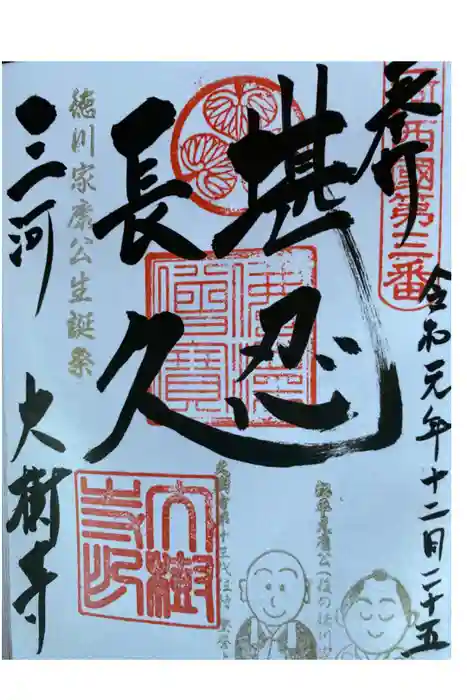 奉拝
新西國第三番
令和元年十二月二十五
堪忍
長久
徳川家康公生誕祭
三河
大樹寺
佛法僧寶
大樹寺印